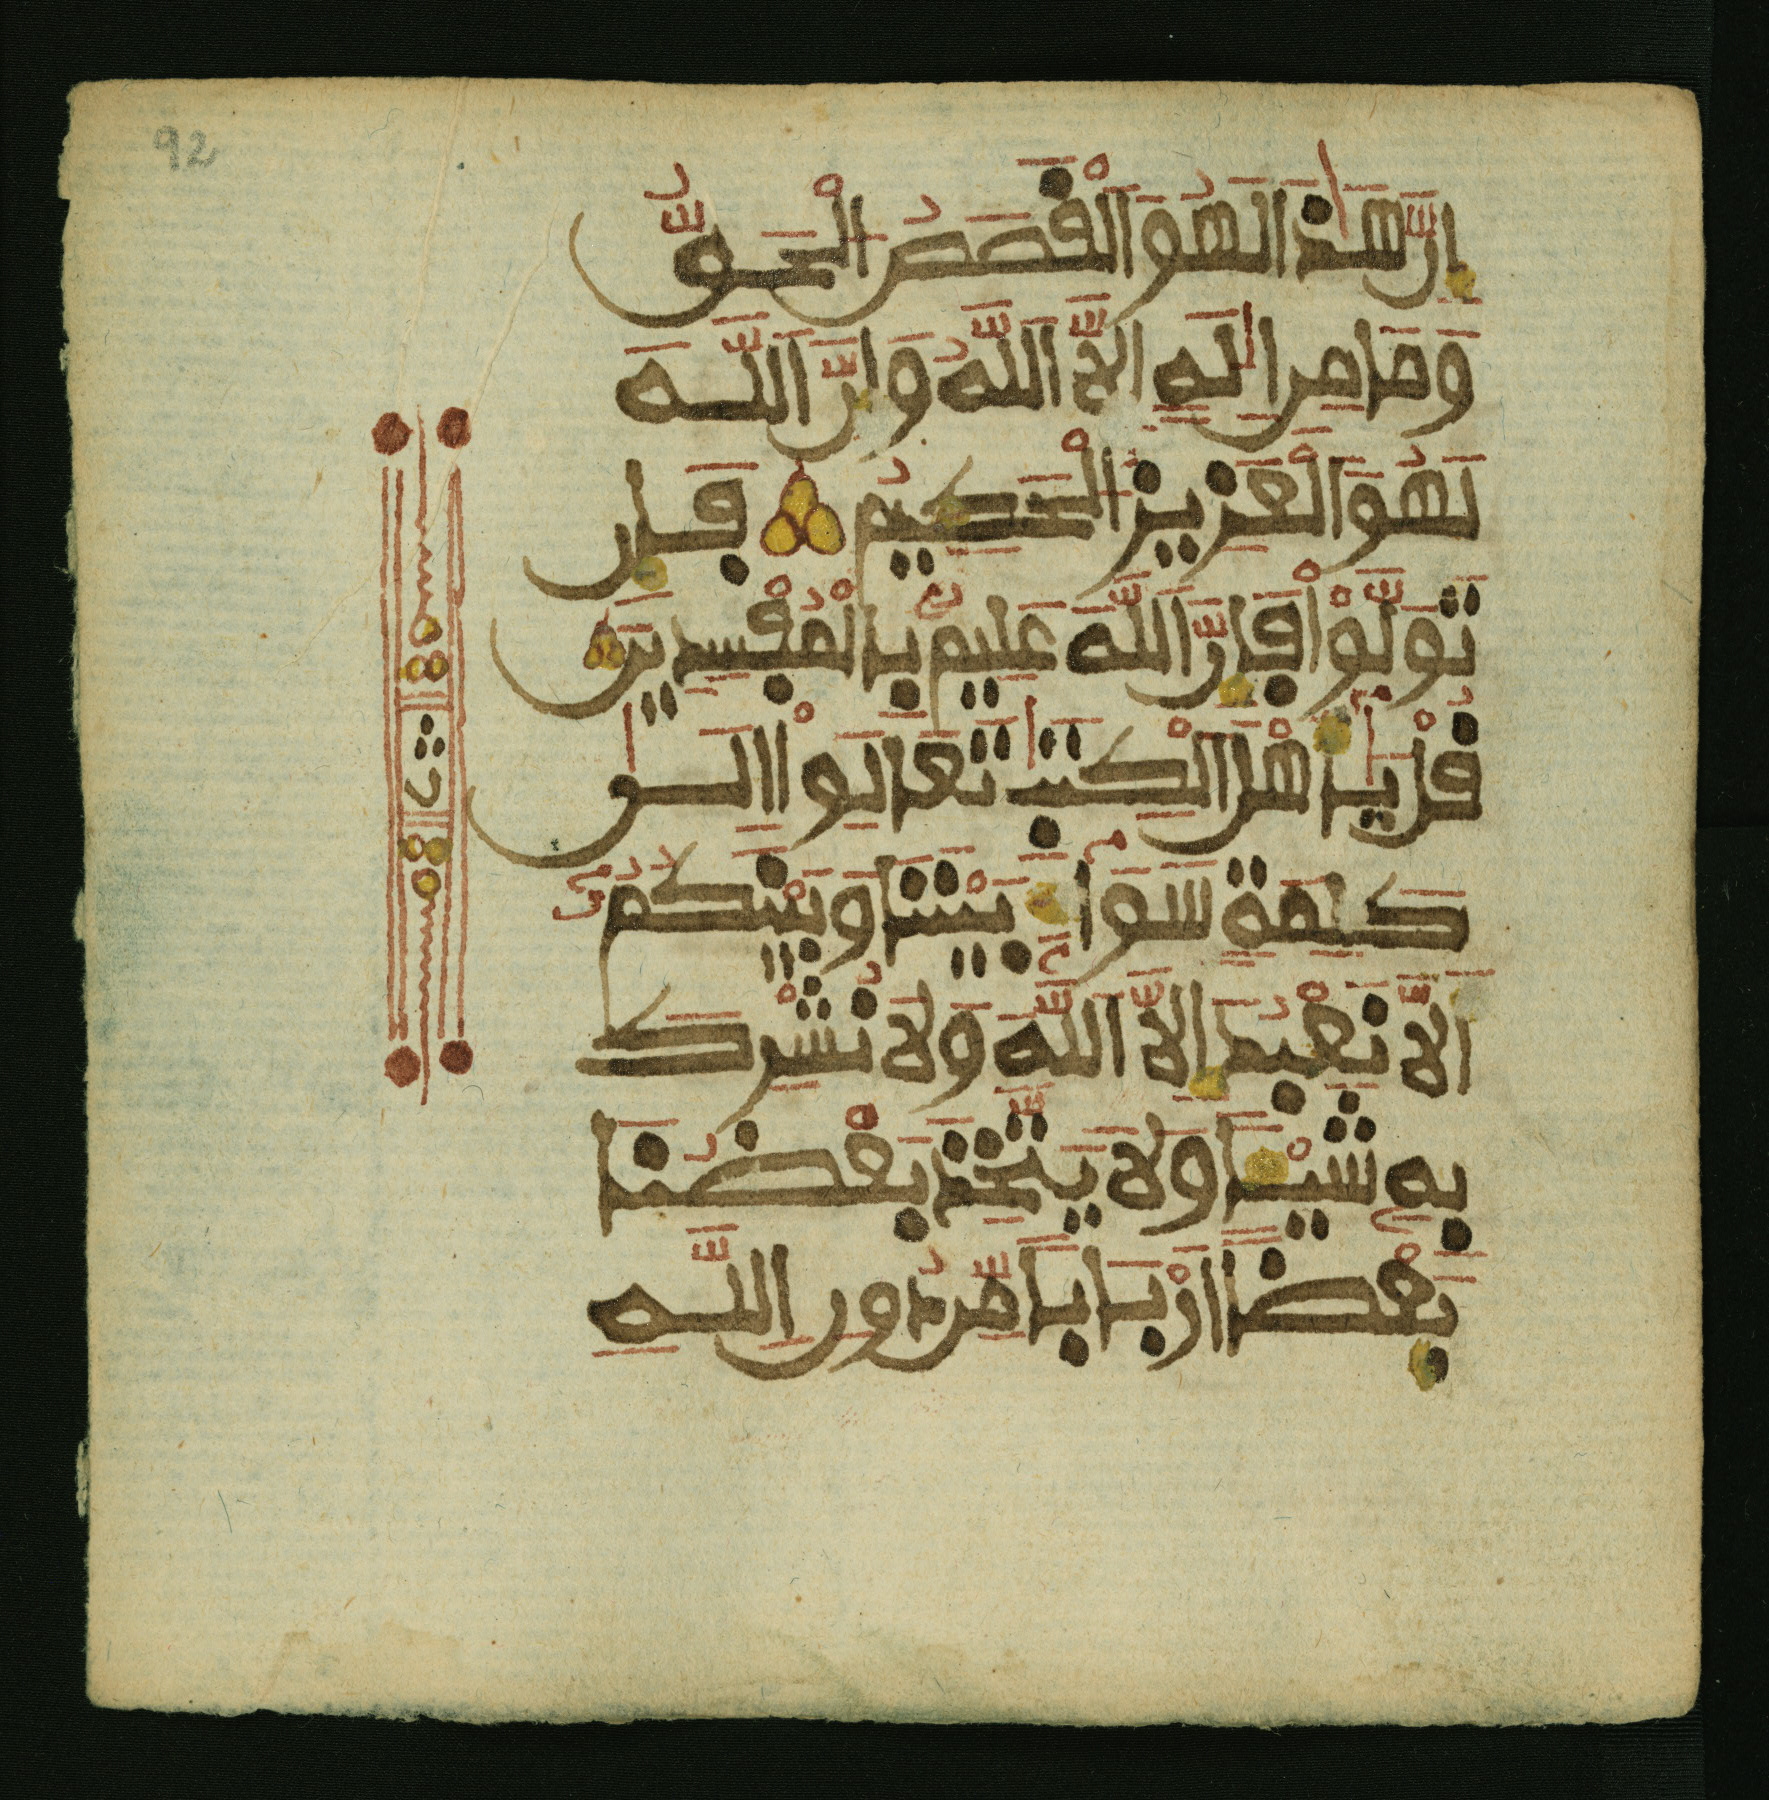 92
إِنَّ هَٰذَا لَهُوَ الْقَصَصُ الْحَقُّ
وَمَا مِنِ الَٰهٍ اِلَّا اَللَّهُ وَإِنَّ اَللَّهَ
لَهُوَ الْعَزِيزُ الْحَكِيمُ فَإِن
تَوَلَّوْاْ فَإِنَّ اَللَّهَ عَلِيمٌ بِالْمُفْسِدِينَ
قُلْ يَٰأَهْلَ الْكِتَٰبِ تَعَالَوِاْ اِلَىٰ
كَلِمَةٍ سَوَآءٍ بَيْنَنَا وَبَيْنَكُمُ
أَلَّا نَعْبُدَ إِلَّا اَللَّهَ وَلَا نُشْرِكَ
بِهِ شَيْـًٔا وَلَا يَتَّخِذَ بَعْضُنَا
بَعْضاً اَرْبَاباً مِّن دُونِ اِللَّهِ
ث
ن